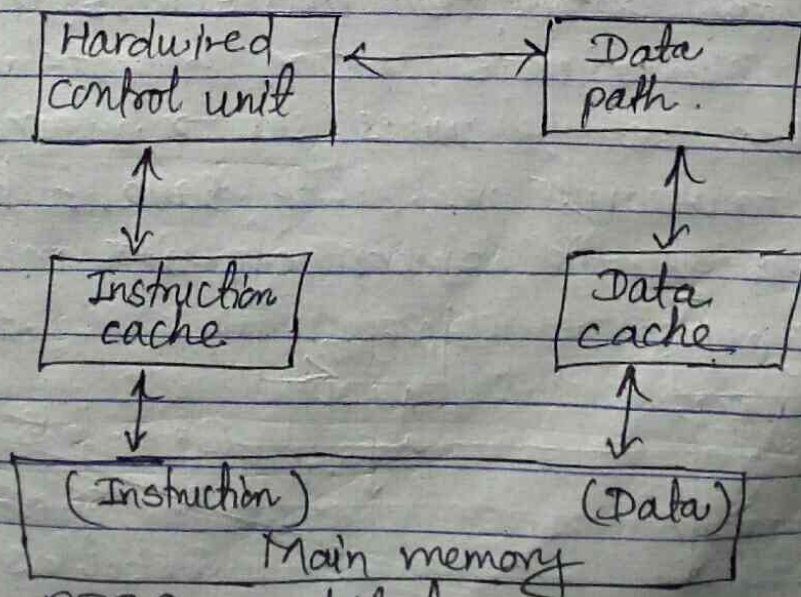 Hardwired
control unit
Data
path.
Instruction
cache
Data
cache
(Instruction)
(Data)
Main memory